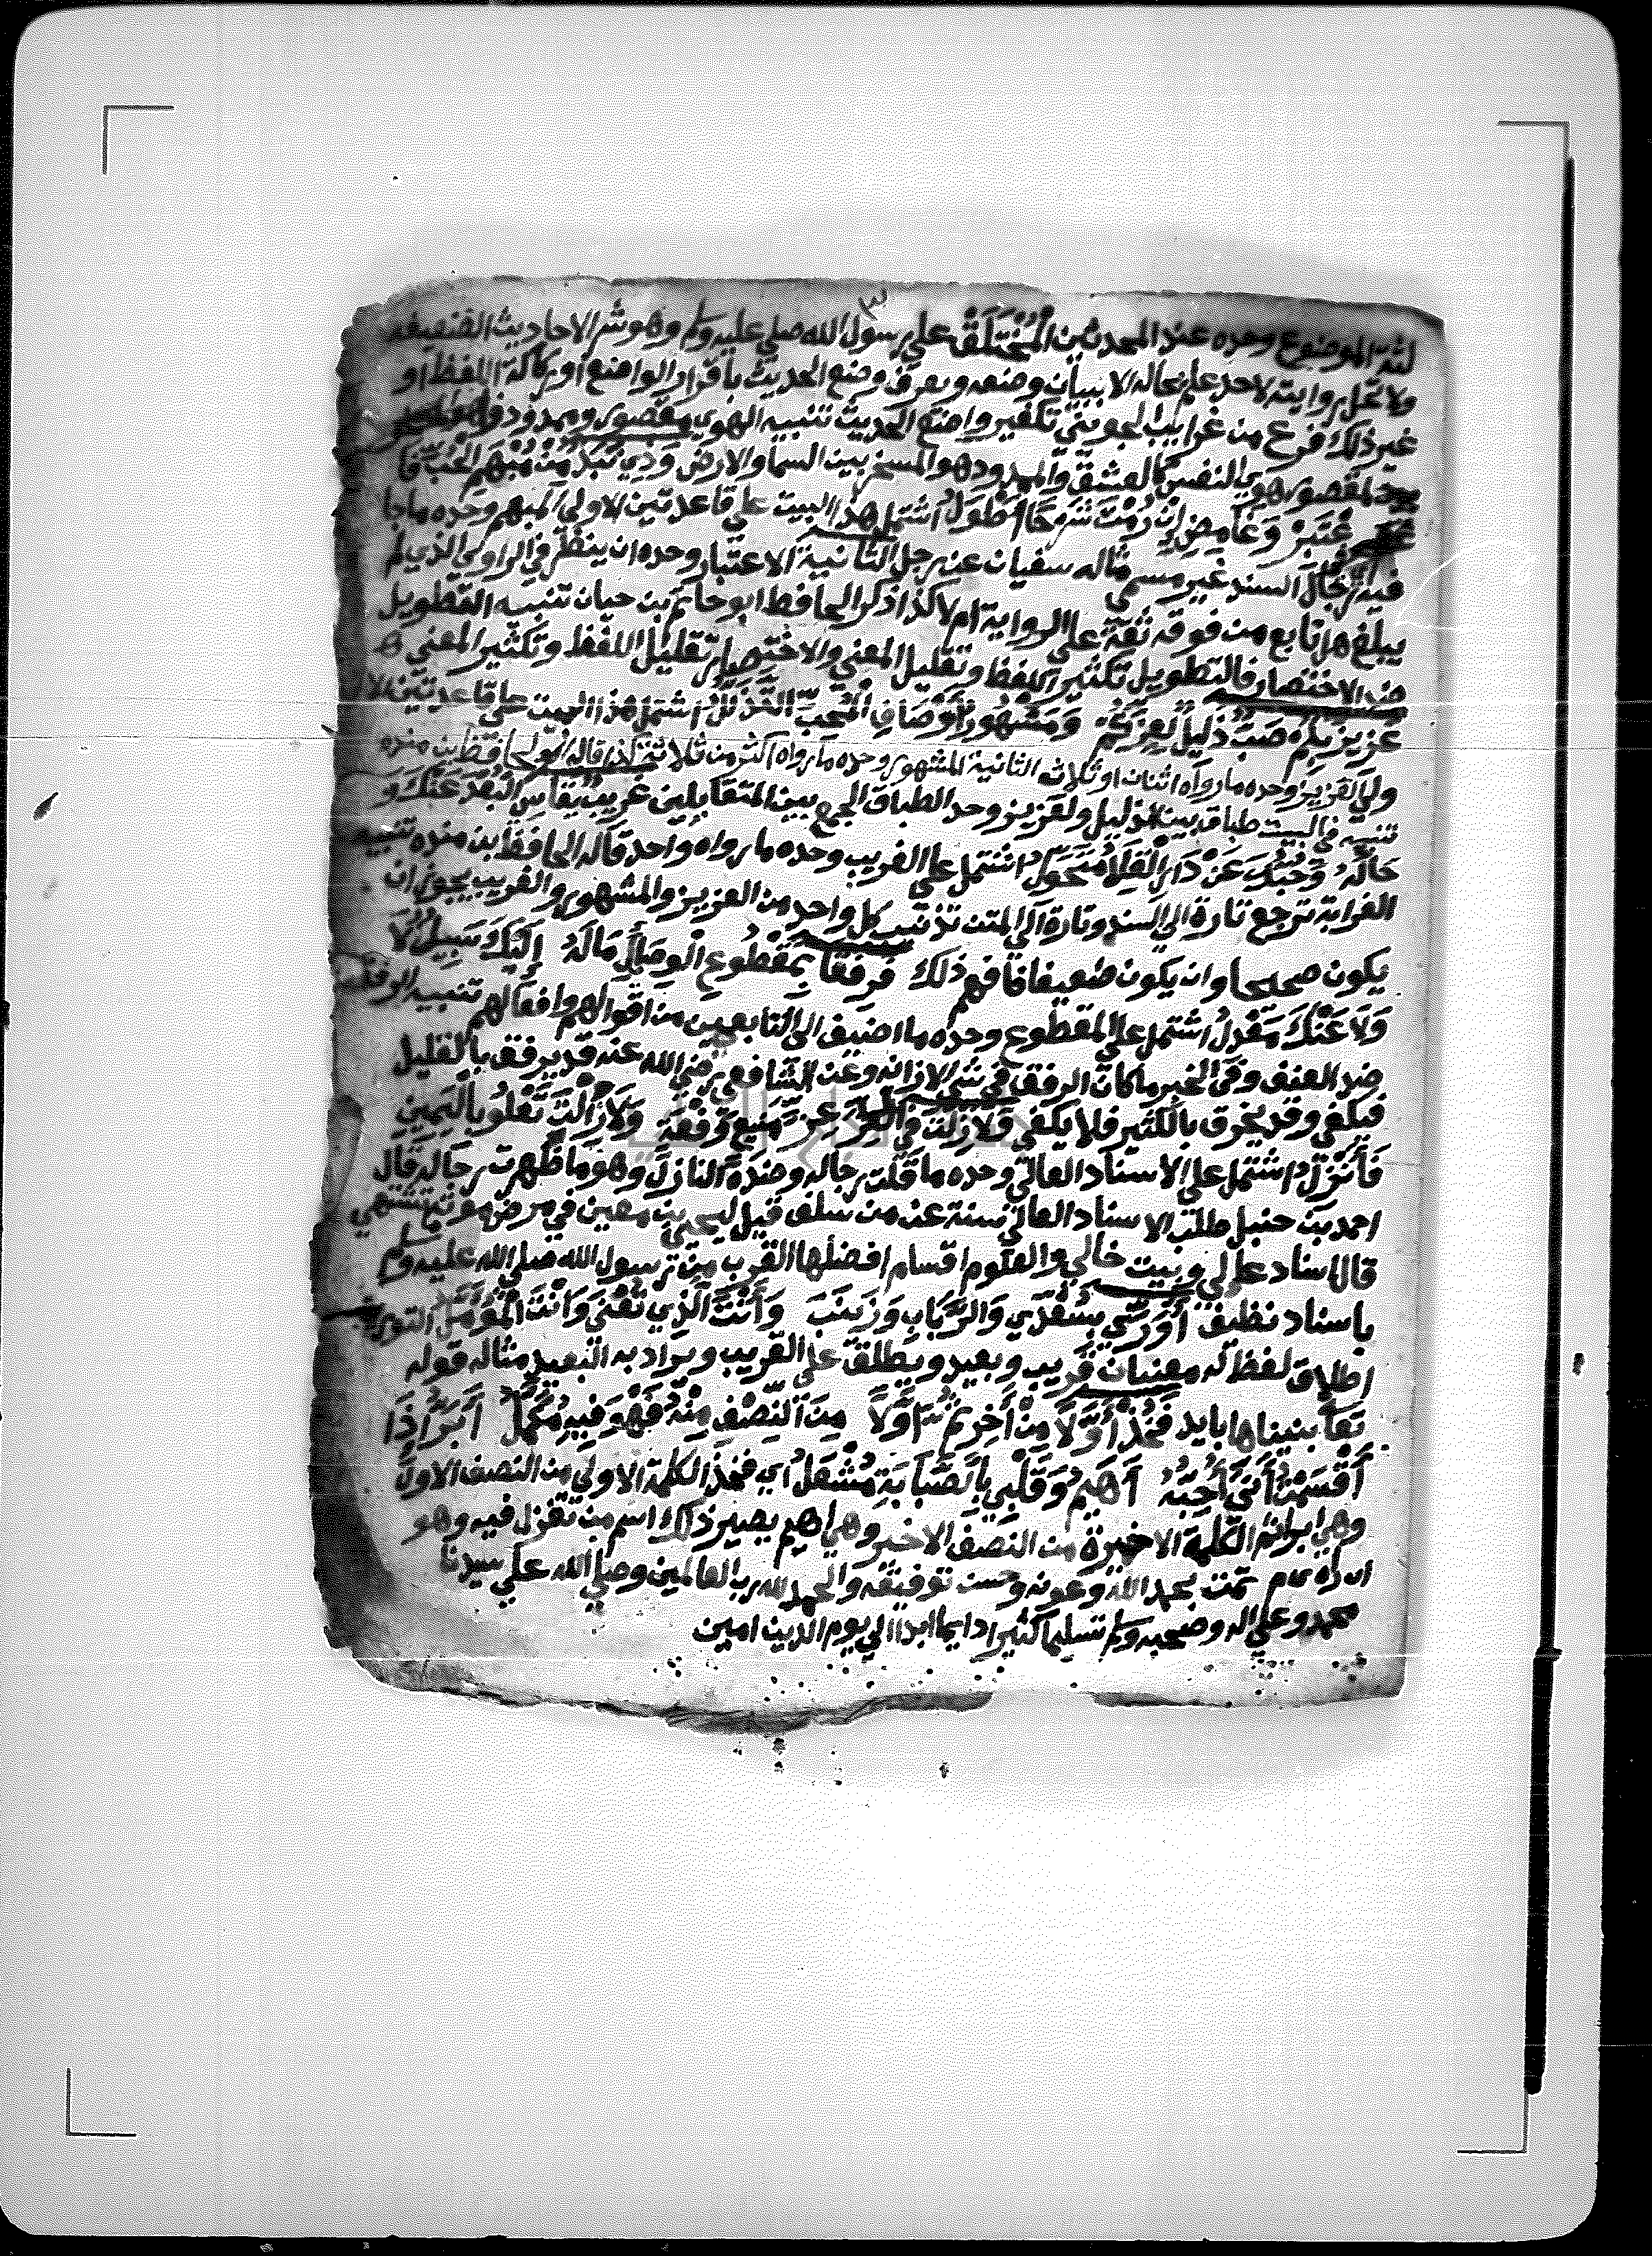 ٣
الموضوع وحده عند المحدثين المُخْتَلَقُ على رسول الله صلى عليه وسلم وهو شر الاحاديث الضعيفه
ولا تحل روايته لاحد علم بحاله الا ببيان وضعه ويعرف وضع الحديث باقرار الواضع او ركاكة اللفظ او
غير ذلك فرع من غرايب الجويني تكفير واضع الحديث تنبيه الهوي مقصور وممدود
المقصور هوي النفس كالعشق والممدود هو المسخر بين السما والارض وَذِي نُبَذٌ مِّنْ مُبْهَمِ الْحُبّ فَا
عْتَبِرْ وَغَامِضِهِ اِن رُمْتَ شَرْحًا اُطَوِّلُ اشتمل هذا البيت علي قاعدتين الاولي المبهم وحده ما جا
فيه رجال السند غير مسمى مثاله سفيان عن رجل الثانية الاعتبار وحده ان ينظر في الراوي الذي لم
يبلغ هل تابع من فوقه ثقة على الرواية ام لا كذا ذكر الحافظ ابو حاتم بن حيان تنبيه التطويل
ضد الاختصار فالتطويل تكثير اللفظ وتقليل المعني والاختصار تقليل اللفظ وتكثير المعني
عزيز بِكُم صَبٌّ ذَلِيلٌ لِعِزِّكُمْ وَمَشْهُورُ اَوْصَافِ الْمُحِبِّ التَّذَلُّلُ اشتمل هذا البيت علي قاعدتين الا
ولي العزيز وحده ما رواه اثنان او ثلاثه الثانية المشهور وحده ما رواه اكثر من ثلاثة كذا قاله الحافظ ابن منده
تنبيه في البيت طباق بين الذليل والعزيز وحد الطباق الجمع بين المتقابلين غَرِيبٌ يُقَاسِي الْبُعْدَ عَنْكَ وَ
مَالَهُ وَحَقِّكَ عَنْ دَارِ الْقِلَا مُتَحَوَّلُ اشتمل علي الغريب وحده ما رواه واحد قاله الحافظ ابن منده تنبيه
الغرابة ترجع تارة الي السند وتارة الي المتن تذنيب كل واحد من العزيز والمشهور والغريب يجوز ان
يكون صحيحا وان يكون ضعيفا فافهم ذلك فَرِفْقًا بِمَقْطُوعِ الْوِصَالِ مَالَهُ اِلَيْكَ سَبِيلٌ لَا
وَلَا عَنْكَ مَعْدِلُ اشتمل علي المقطوع وحده ما اضيف الي التابعين من اقوالهم وافعالهم تنبيه الرفق
ضد العنف وفي الخبر ما كان الرفق في شي الا زانه وعن الشافعي رضي الله عنه قد يرفق بالقليل
فيكفي وقد يخرق بالكثير فلا يكفي وَلَا زِلْتَ فِي عِزٍّ مَنِيعٍ وَرِفْعَةٍ وَلَا زِلْتَ تَعْلُو بِالْيَمِينِ
فَأَنْزِلُ اشتمل علي الاسناد العالي وحده ما قلت رجاله وضده النازل وهو ما ظهرت رجاله قال
احمد بن حنبل طلب الاسناد العالي سنة عن من سلف قيل ليحيى بن معين في مرض موته ما تشتهي
قال اسناد عالي وبيت خالي والعلوم اقسام افضلها القرب من رسول الله صلى الله عليه وسلم
باسناد نظيف أُوَرّي بِسُعْدَي وَالرَّبَابِ وَزَيْنَبَ وَأَنْتَ الَّذِي تُعْنَي وَاَنْتَ الْمُؤَمَّلُ التورية
اطلاق لفظ له معنيان قريب وبعيد ويطلق على القريب ويراد به البعيد مثاله قوله
تعا بنيناها بايد فَخُذْ أَوَّلًا مِنْ آخِرٍ ثُمَّ اَوَّلًا مِنَ النِّصْفِ مِنْهُ فَهْوَ فِيهِ مُكَمَّلُ أَبَرُّ اِذَا
أَقْسَمْتُ أَنَّي أُحِبُّهُ أَهِيمُ وَقَلْبِي بِالصَّبَابَةِ مُشْعَلُ اي فخذ الكلمة الاولي من النصف الاول
وهي ابر ثم الكلمة الاخيرة من النصف الاخير وهي اهيم يصير ذلك اسم من تغزل فيه وهو
تمت بحمد الله وعونه وحسن توفيقه والحمد لله رب العالمين وصلي الله علي سيدنا
محمد وعلي اله وصحبه وسلم تسليما كثيرا دايما ابدا الي يوم الدين امين